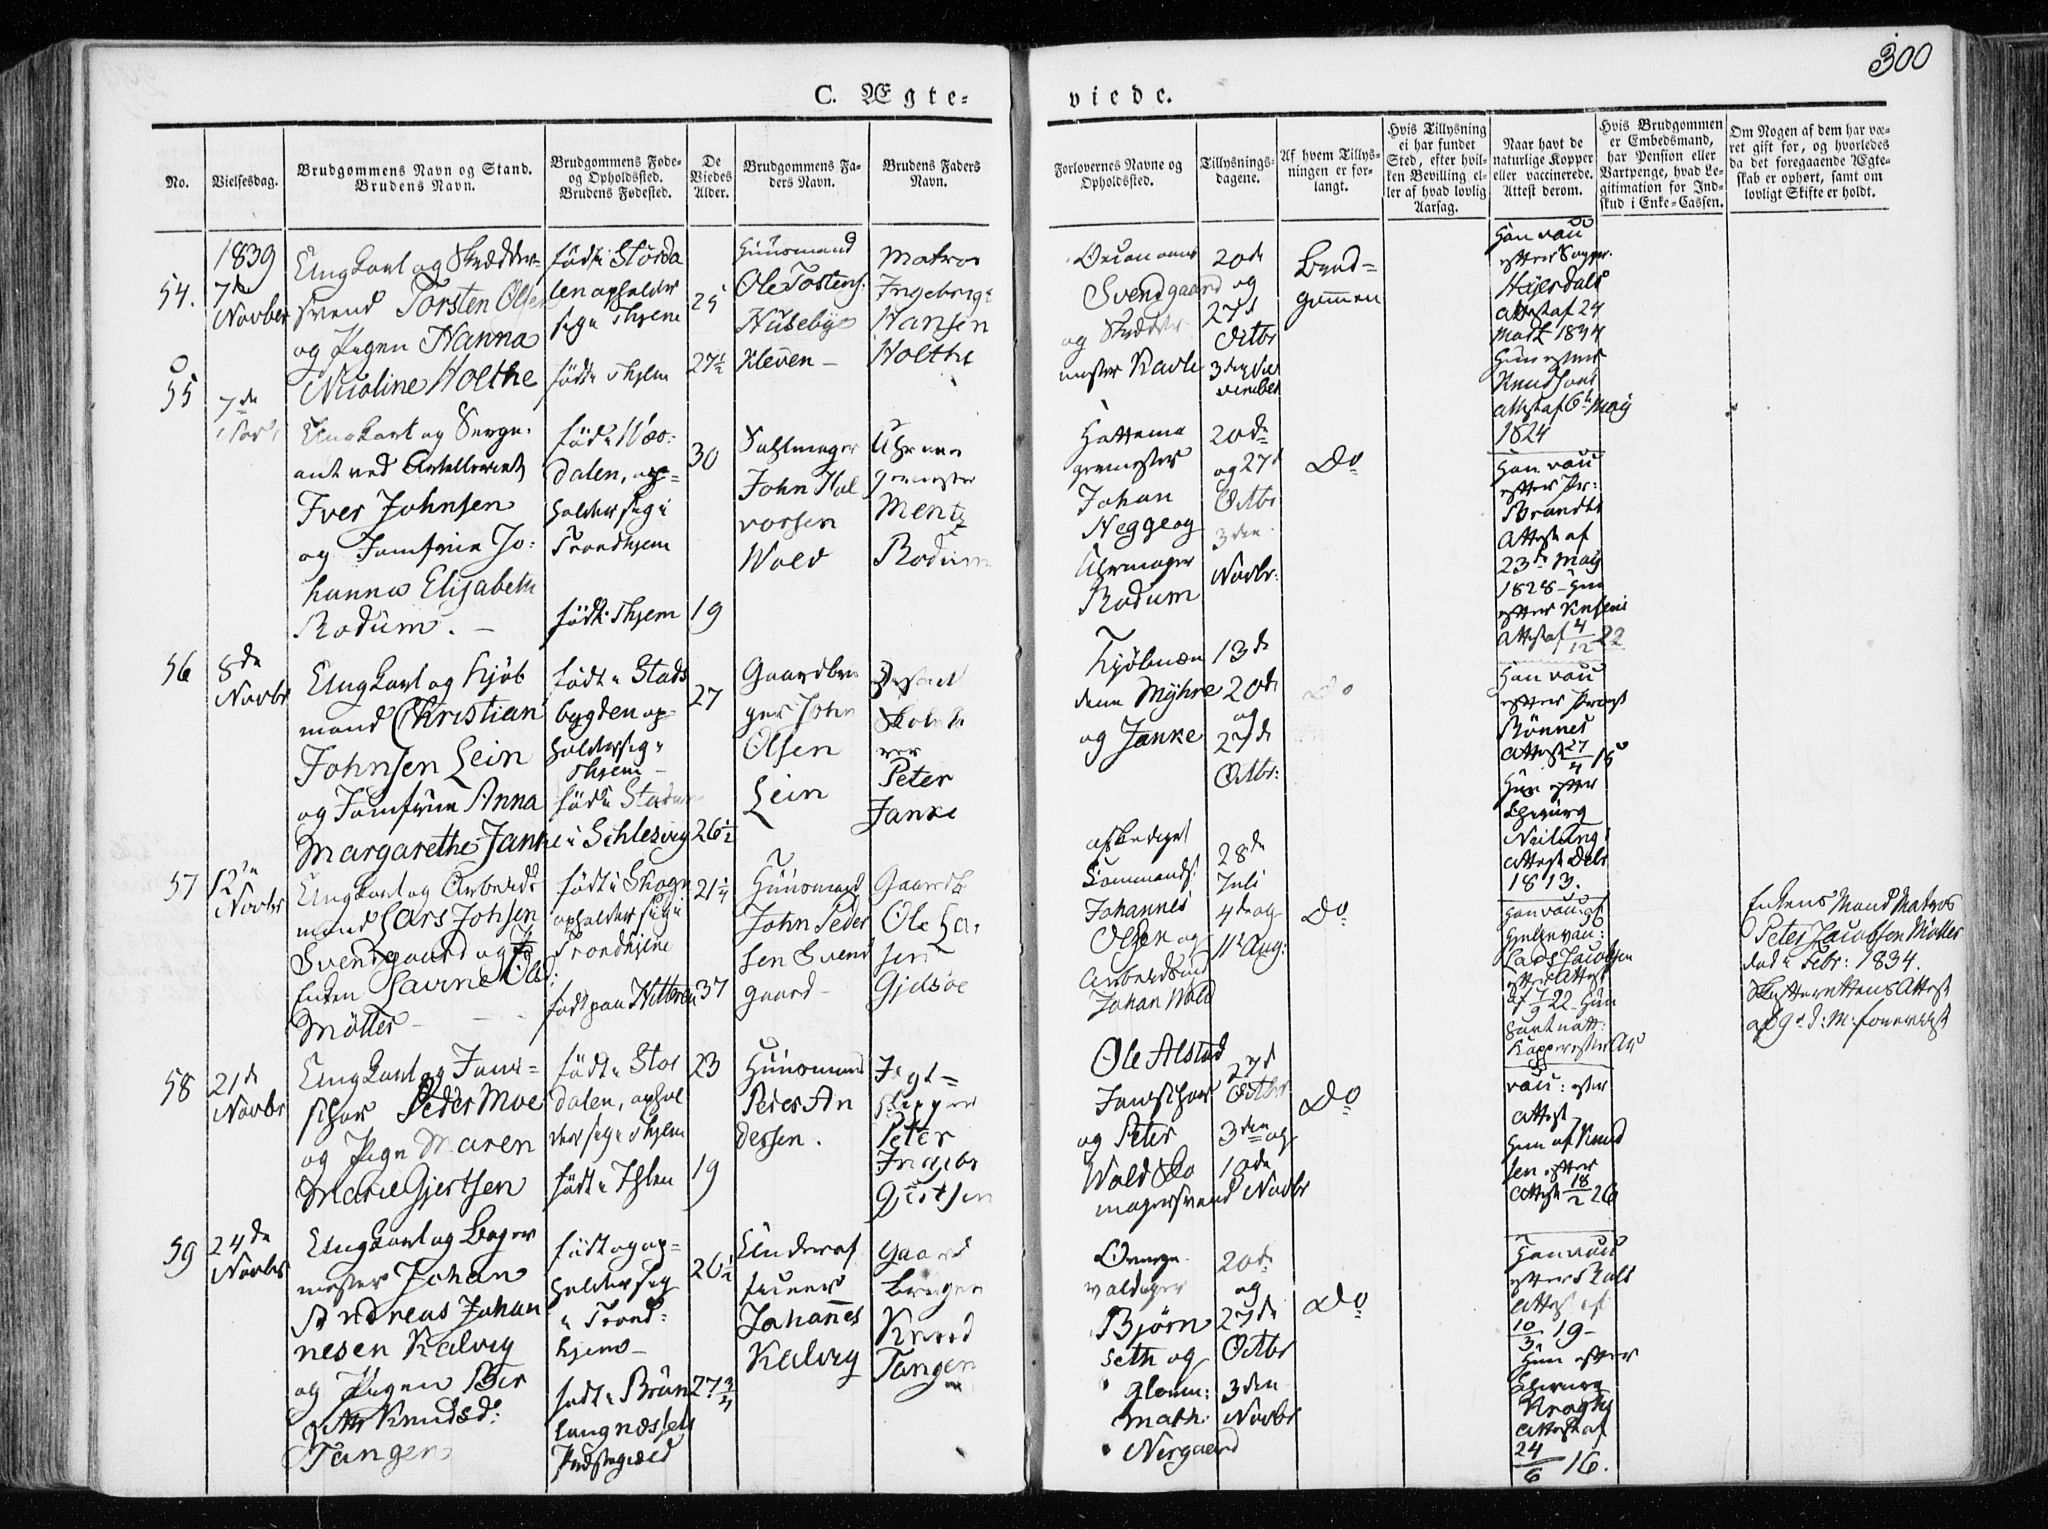 300
C. Ægte=
viede.
No.
Vielsesdag.
Brudgommens Navn og Stand.
Brudens Navn.
Brudgommens Føde-
og Opholdssted.
Brudens Fødested.
De
Viedes
Alder.
Brudgommens Fa-
ders Navn.
Brudens Faders
Navn.
Forlovernes Navne og
Opholdssted.
Tillysnings-
dagene.
Af hvem Tillys-
ningen er for-
langt.
Hvis Tillysning
ei har fundet
Sted, efter hvil-
ken Bevilling el-
ler af hvad lovlig
Aarsag.
Naar havt de
naturlige Kopper
eller vaccinerede.
Attest derom.
Hvis Brudgommen
er Embedsmand,
har Pension eller
Vartpenge, hvad Le-
gitimation for Ind-
skud i Enke-Cassen.
Om Nogen af dem har væ-
ret gift før, og hvorledes
da det foregaaende Ægte-
skab er ophørt, samt om
lovligt Skifte er holdt.
54.
1839
7de
Novber
Ungkarl og Skrædder-
svend Torsten Olsen
og Pigen Hanna
Nicoline Holthe
født i Størda
len opholder
sig i Thjem
født i Thjem
25
27½
Huusmand
Ole Tostens.
Huseby
Kleven –
Matros
Ingebrigt
Hansen
Holthe
Svendgaard
og Skrædder
mester Kavli
20de
og
27d
Octbr
3den No
vember
Brud=
gommen
Han vacc
Hegerdals
Attest af 24
Mart 1834
Hun efter
Knudsens
Attest af 6te May
1824
55
7de
Novb
Ungkarl og Serge-
ant ved Artelleriet
Iver Johnsen
og Jomfrue Jo-
hanna Elisabeth
Rodum. –
født i
dalen, op=
holder sig i
Trondhjem
født i Thjem
30
19
Sahlmager
John Hal
vorsen
Wold
Uhrma
germester
Mentz
Rodum
Hattema
germester
Johan
Hegge og
Uhrmager
Rodum
20de
og 27d
Octbr
3den
Novbr:
Do
Han vacc
efter Pr:
Brandts
Attest af
23de May
1828 – Hun
efter Knudsens
Attest af 4/12 22
56
8de
Novbr
Ungkarl og Kjøb
mand Christian
Johnsen Lein
og Jomfrue Anna
Margarethe Janke
født i Stads
bygden op
holder sig i
Thjem –
født i
i Schlesvig
27
26½
Gaardbru
ger John
Olsen
Lein
Skolelæ
rer
Peter
Janke
Kjøbmæn
dene Myhre
og Janke
13de
20de
og
27de
Octbr:
Do
Han vacc
efter Provst
Rønnes
Attest 27/4 15
Hun efter
Chirurg
Attest Debr
1813.
57
12te
Novbr
Ungkarl og Arbeids
mand Lars Johsen
Svendgaard og
Enken Lavine Olsd:
Møller –
født i Skogn
opholder sig i
Trondhjem
født paa Hitteren
21¼
37
Huusmand
John Peder
sen Svend
gaard –
Gaardb
Ole La-
sen
Gjelsøe
afskediget
Kommands:
Johannes
Olsen og
Arbeidsmd
Johan Wold
28de
Juli
4de og
11te Aug:
Do
Lars Jacobsen
efter Attest
af 7/9 22 Hun
havt natt:
Kopper efter Att
Enkens Mand Matros
Peter Jacobsen Møller
død i Febr: 1834.
Skifterettens Attest
af 9d d: M: foreviist
58
21de
Novbr
Ungkarl og Four=
scher Peder Moe
og Pige Maren
Marie Gjertsen
født i Stør
dalen, ophol
der sig i Thjem
født i Ihlen
23
19
Huusmand
Peder An
dersen.
Jagt=
skipper
Peter
Ingebr
Gjertsen
Ole Alstad
Fourscher
og Peter
Wold Sko
magersvend
27d
Octbr
3den og
10de
Novbr
Do
vacc: efter
Attest
Hun af Knud
sen efter
Attest 18/2 26
59
24de
Novbr
Ungkarl og Bager
mester Johan
Andreas Johan
nesen Kalvig
og Pigen Ber
gitte Knudsd:
Tangen
født og op=
holder sig
i Trond=
hjem –
født i Brøn
langnessets
Præstegield
26½
27¾
Underof
ficeer
Johannes
Kalvig
Gaard
bruger
Knud
Tangen
Bjørn
seth og
Math:
Nergaard
20de
og
27de
Octbr
3den
Novbr
Do
Han vacc
efter
Attest af
10/3 19 –
Hun efter
Chirurg
Kroghs
Attest af
24/6 16.